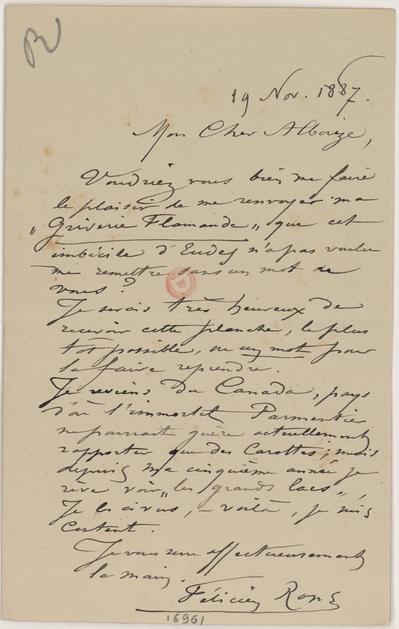 R
19 Nov. 1887.
Mon Cher Albaize,
Voudriez vous bien me faire
le plaisir de me renvoyer ma
„Griserie Flamande„ que cet
imbécile d'Eudes n'a pas voulu
me remettre sans un mot de
vous?
Je serais très heureux de
recevoir cette planche, le plus
tôt possible, ou un mot pour
la faire reprendre.
Je reviens du Canada, pays
d'où l'immortel Parmentier
ne pourrait guère actuellement
rapporter que des Carottes; mais
depuis ma cinquième année je
rêve voir „les grands lacs„,
Je les ai vus, – voilà, je suis
content.
Je vous serre affectueusement
la main.
Félicien Rops
16961